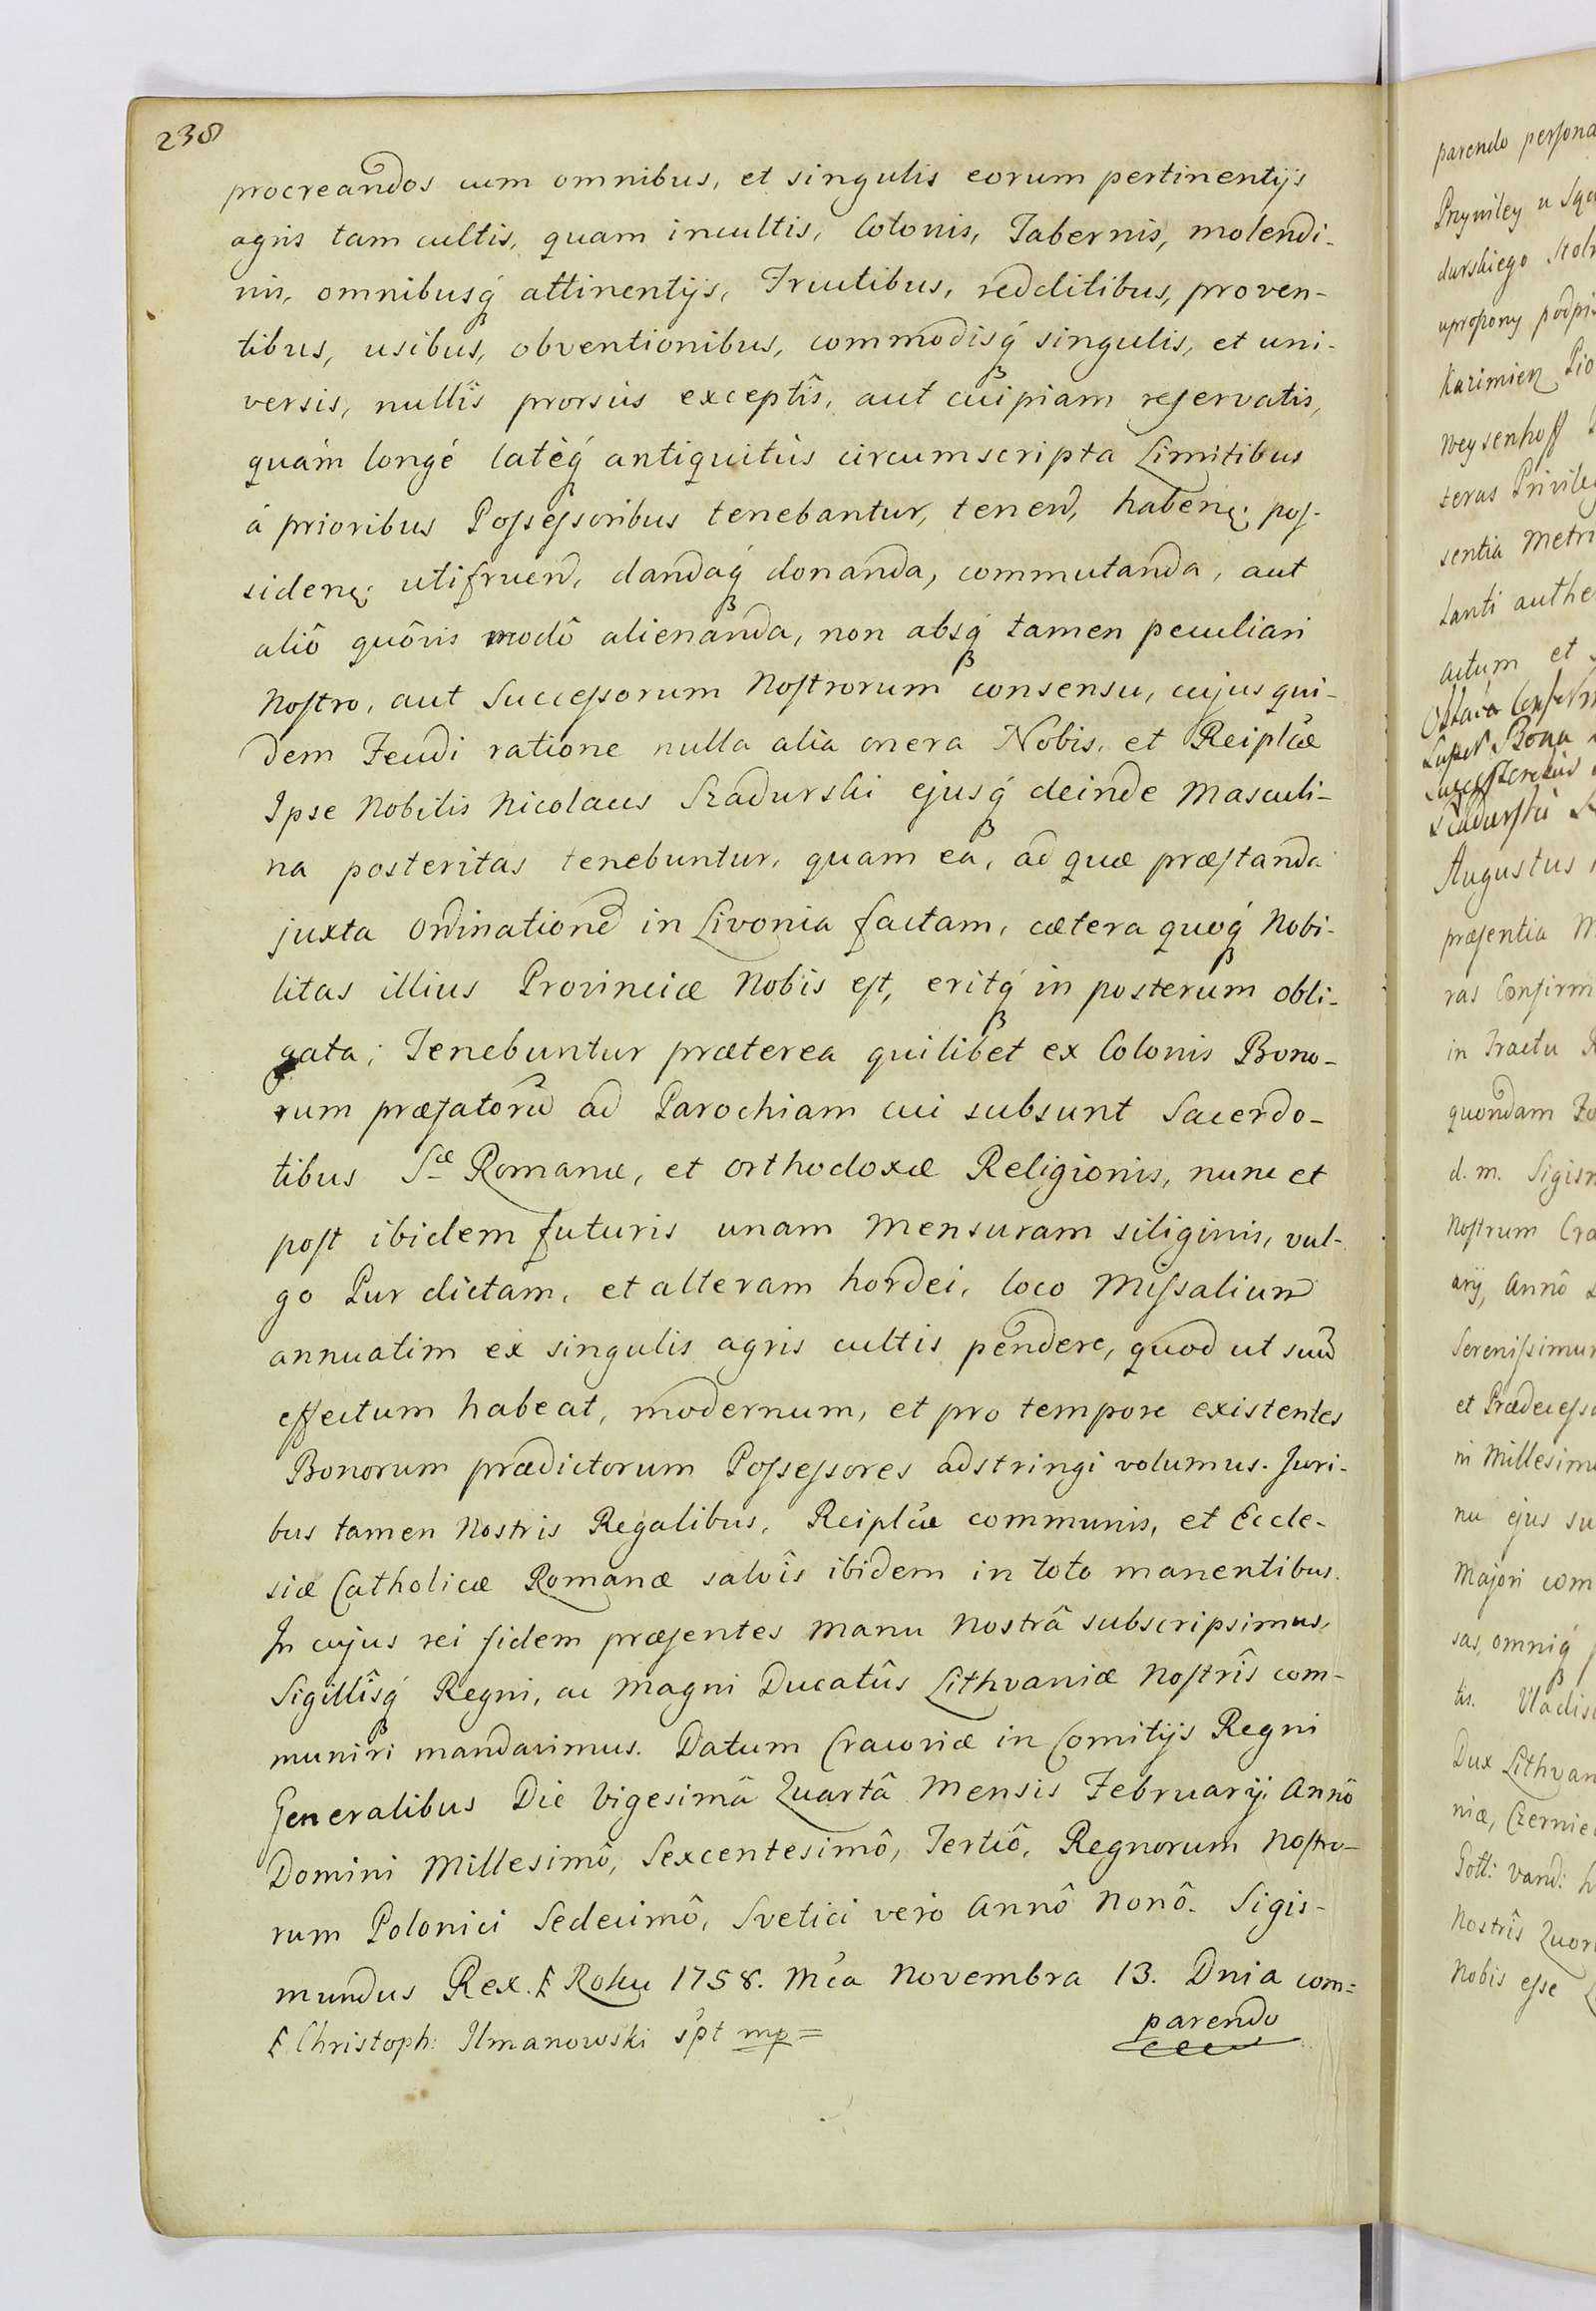 238
procreandos cum omnibus, et singulis eorum pertinentijs
agris tam cultis, quam incultis, Colonis, Tabernis, molendi-
nis, omnibusq́ attinentijs, Fructibus, redditibus, proven-
tibus, usibus, obventionibus, commodisq́ singulis, et uni-
versis, nullîs prorsùs exceptîs, aut cuipiam reservatis,
quàm longé latèq́ antiquitùs circumscripta Limitibus
á prioribus Possessoribus tenebantur, tenend, habenꝫ pos-
sidenꝫ utifruend, dandaq́ donanda, commutanda, aut
aliô quôvis modô alienanda, non absq́ tamen peculiari
Nostro, aut Successorum Nostrorum consensu, cujus qui-
dem Feudi ratione nulla alia onera Nobis, et Reiplcæ
Ipse Nobilis Nicolaus Szadurski ejusq́ deinde Masculi-
na posteritas tenebuntur, quam ea, ad quæ præstanda
juxta Ordinationẽ in Livonia factam, cætera quoq́ Nobi-
litas illius Provinciæ Nobis est, eritq́ in posterum obli-
gata; Tenebuntur præterea quilibet ex Colonis Bono-
rum præfatorũ ad Parochiam cui subsunt Sacerdo-
tibus Sæ Romanæ, et orthodoxæ Religionis, nunc et
post ibidem futuris unam Mensuram siliginis, vul-
go Pur dictam, et alteram hordei, loco Missaliũ
annuatim ex singulis agris cultis pendere, quod ut suũ
effectum habeat, modernum, et pro tempore existentes
Bonorum prædictorum Possessores adstringi volumus. Juri-
bus tamen Nostris Regalibus, Reiplcæ communis, et Eccle-
siæ Catholicæ Romanæ salvîs ibidem in toto manentibus.
In cujus rei fidem præsentes Manu Nostrâ subscripsimus,
Sigillîsq́ Regni, ac Magni Ducatûs Lithvaniæ Nostrîs com-
muniri mandavimus. Datum Cracoviæ in Comitijs Regni
Generalibus Die Vigesimâ Quartâ Mensis Februarij Annô
Domini Millesimô, Sexcentesimô, Tertiô, Regnorum Nostro-
rum Polonici Sedecimô, Svetici vero Annô Nonô. Sigis-
mundus Rex. Roku 1758. Mca Novembra 13. Dnia com=
Christoph: Ilmanowski spt mp=
parendo
parendo persona
Przywiley u
durskiego Stol
uproszony podpis
Kazimierz Pio
Weysenhoff
teras Privileg
sentia Metri
tanti authe
actum et
Oblata Confirm
Super Bona
Szadurski
Augustus
præsentia M
ras Confirm
in Tractu
quondam
d. m. Sigism
Nostrum Cra
arij, Annô
Serenissimu
et Prædecesso
ni Millesim
nu ejus su
Majori com
sas, omniq́
tis. Vladis
Dux Lithvan
niæ, Czernie
Gott: Vand: h
Nostrîs Quor
Nobis esse